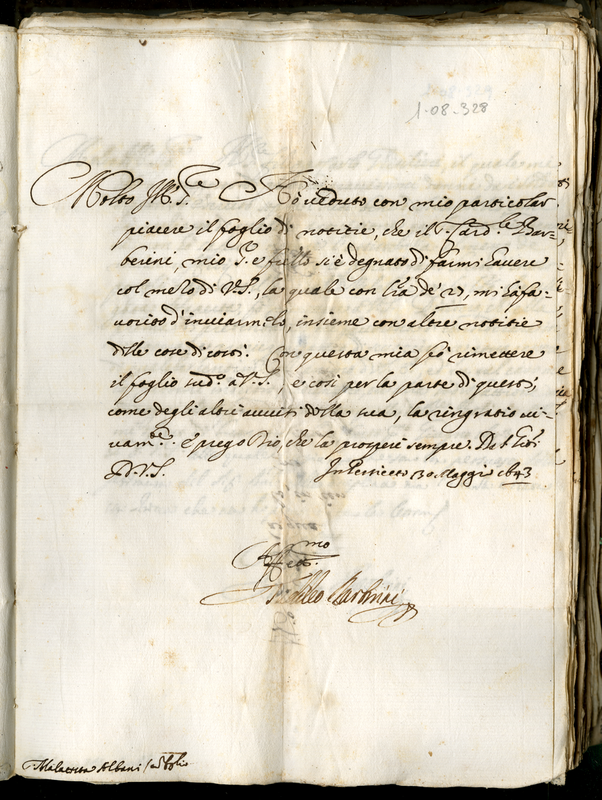 1-08-328
Molto Ill.re S.re Ho veduto con mio particolar
piacere il foglio di notitie, che il S. Card.le Bar=
berini, mio S.re e fr̃ello si è degnato di farmi havere
col mezo di V.S., la quale con l'ra de' 27, mi hà fa=
vorito d'inviarmelo, insieme con altre notitie
delle cose di costì. Con questa mia fò rimettere
il foglio sud.o à V.S., e così per la parte di questo,
come degli altri avvisi della sua, la ringratio vi=
vam.te e prego Dio, che la prosperi sempre. Di
D.V.S. In Persiceto 30. Maggio 1643
Aff.mo
Taddeo Barberini
Malatesta Albani